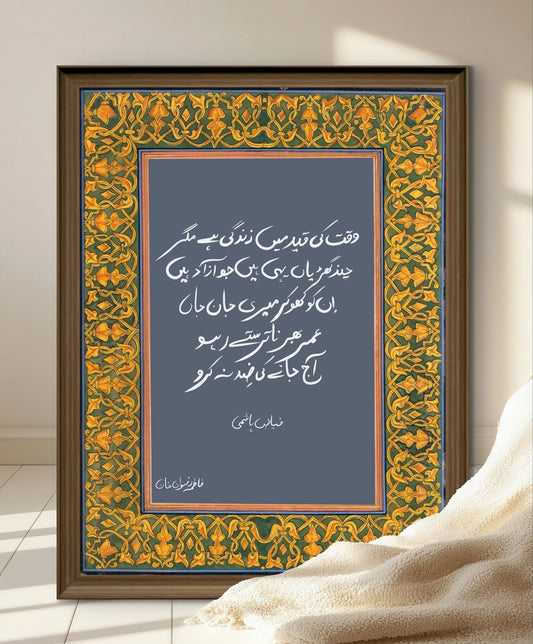 وقت کی قید میں زندگی ہے مگر
چند گھڑیاں یہی ہیں جو آزاد ہیں
اِن کو کھو کر میری جانِ جاں
عمر بھر نا ترستے رہو
آج جانے کی ضِد نہ کرو
فیاض ہاشمی
فاطمہ رضوان خان